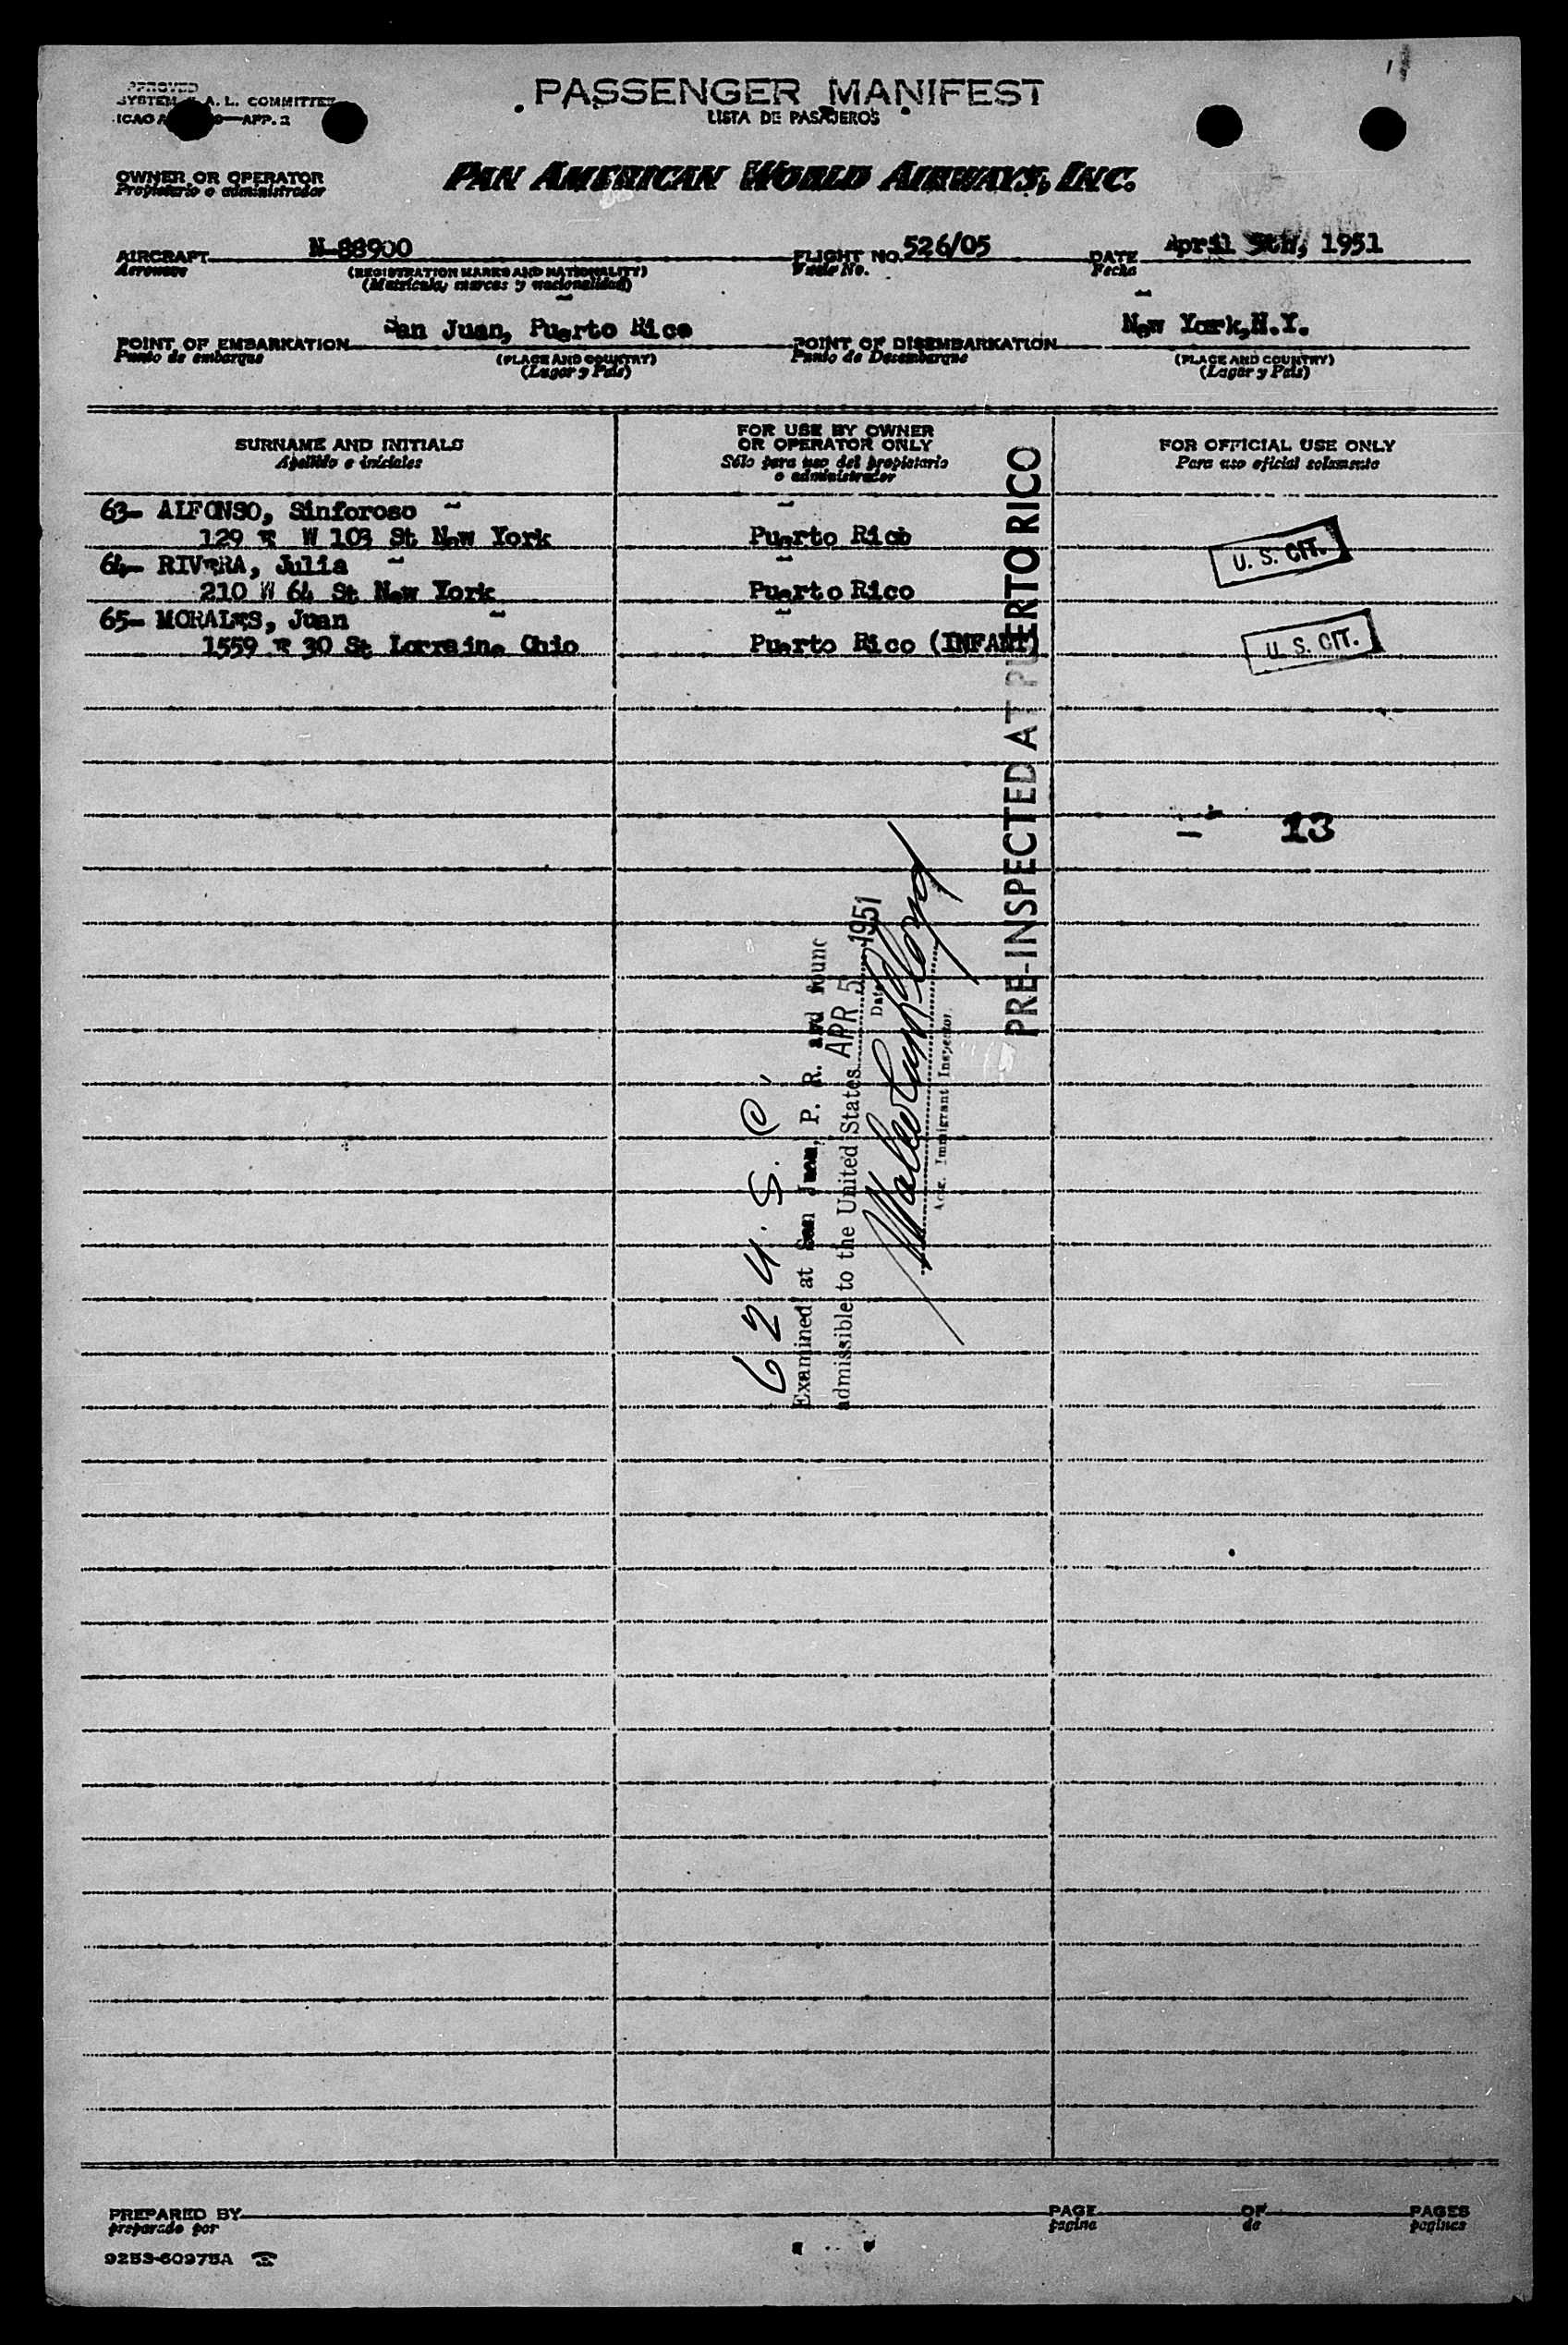 PPROVED
SYSTEM A. L. COMMITTEE
ICAO A 9—APP. 2
PASSENGER MANIFEST
LISTA DE PASAJEROS
OWNER OR OPERATOR
Propietario o administrador
PAN AMERICAN WORLD AIRWAYS, INC.
AIRCRAFT N-88900 FLIGHT NO. 526/05 DATE April 5th, 1951
Aeronave (REGISTRATION MARKS AND NATIONALITY) Vuelo No. Fecha
(Matrícula, marcas y nacionalidad)
POINT OF EMBARKATION San Juan, Puerto Rico POINT OF DISEMBARKATION New York, N.Y.
Punto de embarque (PLACE AND COUNTRY) Punto de Desembarque (PLACE AND COUNTRY)
(Lugar y País) (Lugar y País)
SURNAME AND INITIALS
Apellido e iniciales
FOR USE BY OWNER
OR OPERATOR ONLY
Sólo para uso del propietario
o administrador
FOR OFFICIAL USE ONLY
Para uso oficial solamente
63- ALFONSO, Sinforoso
129 E W 103 St New York Puerto Rico U. S. CIT.
64- RIVERA, Julia
210 W 64 St New York Puerto Rico
65- MORALES, Juan
1559 E 30 St Lorraine Ohio Puerto Rico (INFANT) U. S. CIT.
PRE-INSPECTED AT PUERTO RICO
13
62 U. S. C.
Examined at San Juan, P. R. and foun
admissible to the United States APR 5 1951
Date
Immigrant Inspector
PREPARED BY PAGE OF PAGES
preparado por pagina de paginas
9253-60975A